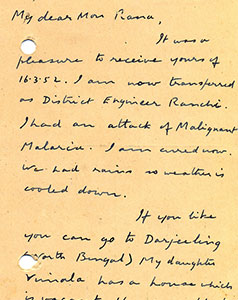 My dear Mon Rana,
It was a
pleasure to receive yours of
16.3.52. I am now transferred
as District Engineer Ranchi.
I had an attack of Malignant
Malaria. I am cured now.
We had rains so weather is
cooled down.
If you like
you can go to Darjeeling
(North Bengal) My daughter
Vimola has a house which